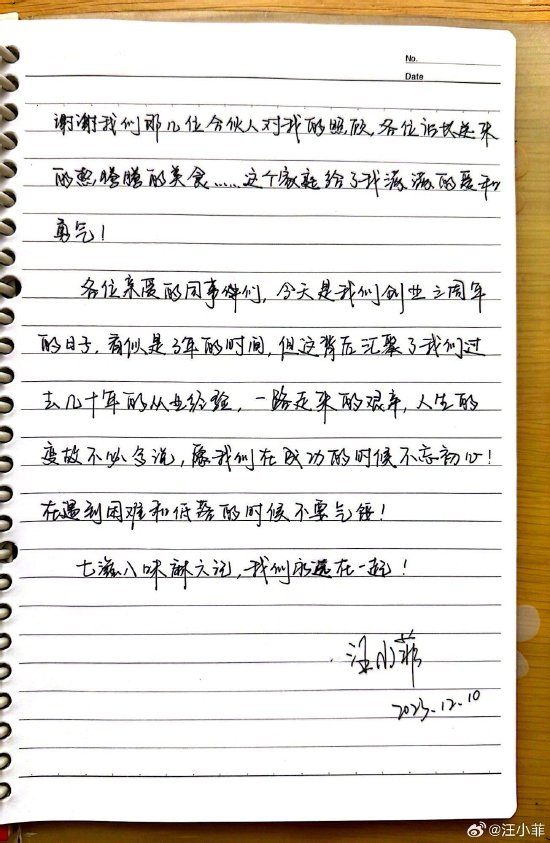 No.
Date
谢谢我们那几位合伙人对我的照顾,各位记挂送来
的热腾腾的美食……这个家庭给了我满满的爱和
勇气!
各位亲爱的同事伴们,今天是我们创业三周年
的日子,看似是3年的时间,但这背后汇聚了我们过
去几十年的从业经验,一路走来的艰辛,人生的
变故不必多说,愿我们在成功的时候不忘初心!
在遇到困难和低落的时候不要气馁!
七滋八味麻六记,我们永远在一起!
汪小菲
2023.12.10
@汪小菲